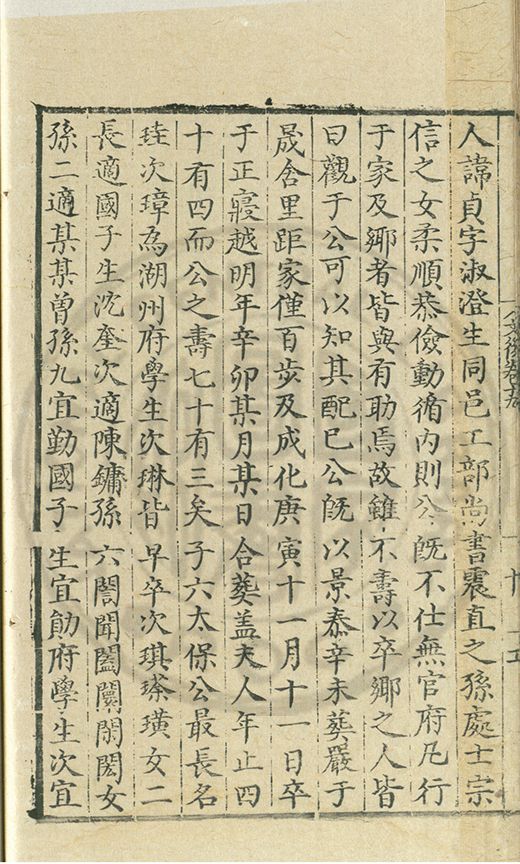 人諱貞字淑澄生同邑工部尚書震直之孫處士宗
信之女柔順恭儉動循內則公既不仕無官府凡行
于家及鄉者皆與有助焉故雖不壽以卒鄉之人皆
曰觀于公可以知其配已公既以景泰辛未葬嚴于
晟舍里距家僅百步及成化庚寅十一月十一日卒
于正寢越明年辛卯某月某日合葬盖夫人年止四
十有四而公之壽七十有三矣子六太保公最長名
珪次璋為湖州府學生次琳皆早卒次琪㻮璜女二
長適國子生沈奎次適陳鏞孫六誾聞闔闠閑閎女
孫二適某某曾孫九宜勤國子生宜勛府學生次宜